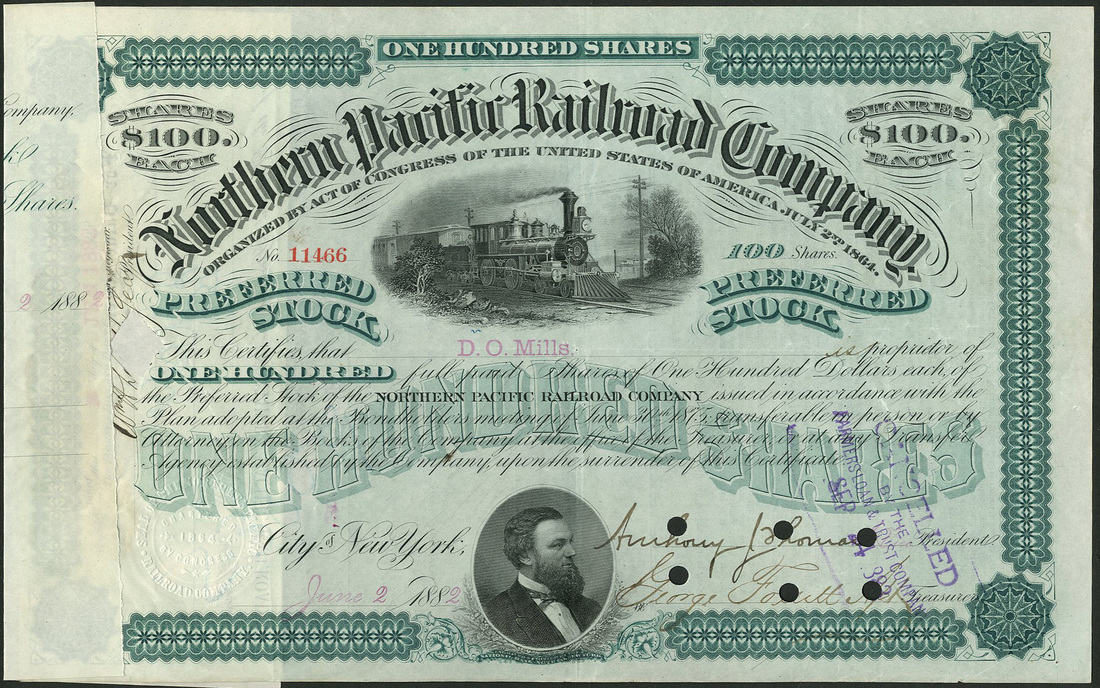 ONE HUNDRED SHARES
ompany,
Shares.
2 1882
SHARES $100. EACH
SHARES $100. EACH
Northern Pacific Railroad Company,
ORGANIZED BY ACT OF CONGRESS OF THE UNITED STATES OF AMERICA, JULY 2ND 1864.
No. 11466
100 Shares.
PREFERRED STOCK
PREFERRED STOCK
This Certifies, that D. O. Mills. is proprietor of
ONE HUNDRED full paid Shares of One Hundred Dollars each, of
the Preferred Stock of the NORTHERN PACIFIC RAILROAD COMPANY issued in accordance with the
Plan adopted at the Bondholders meeting of June transferable in person or by
Attorney on the Books of the Company at the office of the Treasurer, or at any Transfer
Agency established by the Company, upon the surrender of this Certificate.
ONE HUNDRED SHARES
CANCELLED
BY THE
FARMERS LOAN & TRUST COMPANY
SEP
City of New York,
Anthony J Thomas President
June 2 1882
George Treasurer